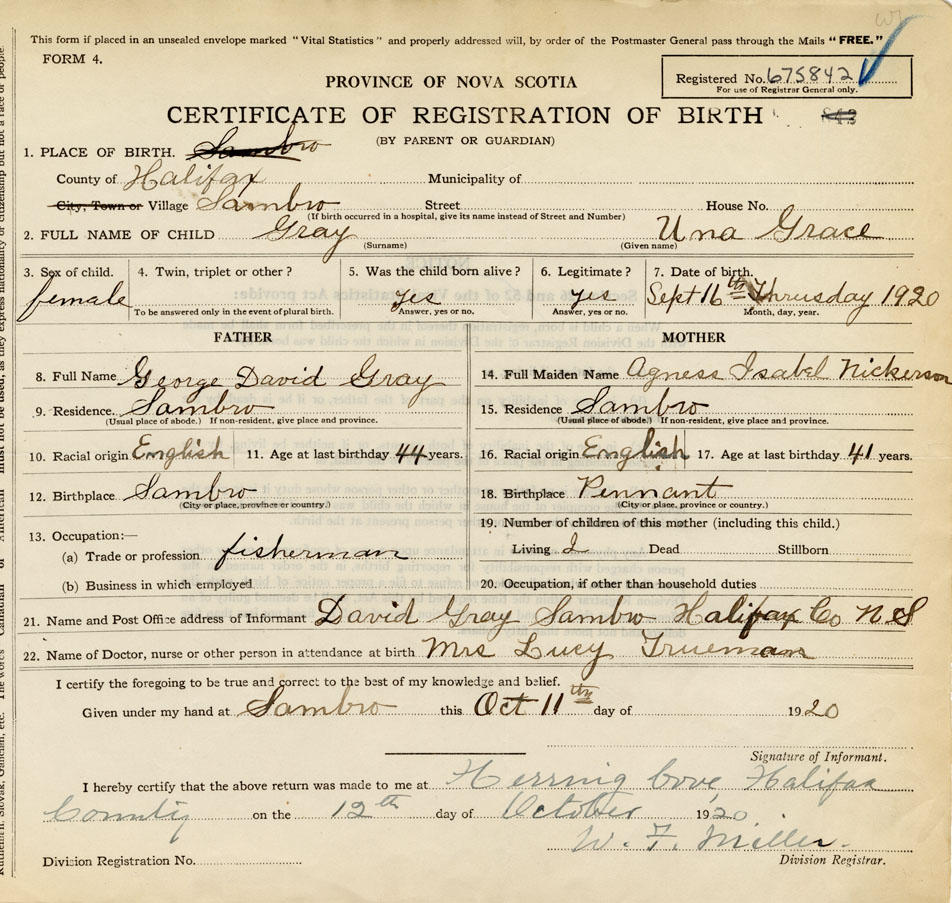 This form if placed in an unsealed envelope marked "Vital Statistics" and properly addressed will, by order of the Postmaster General pass through the Mails "FREE."
FORM 4.
Registered No. 675842
For use of Registrar General only.
PROVINCE OF NOVA SCOTIA
CERTIFICATE OF REGISTRATION OF BIRTH
(BY PARENT OR GUARDIAN)
1. PLACE OF BIRTH. Sambro
County of Halifax Municipality of
City, Town or Village Sambro Street House No.
(If birth occurred in a hospital, give its name instead of Street and Number)
2. FULL NAME OF CHILD Gray Una Grace
(Surname) (Given name)
3. Sex of child. 4. Twin, triplet or other? 5. Was the child born alive? 6. Legitimate? 7. Date of birth.
female yes yes Sept 16th Thrusday 1920
To be answered only in the event of plural birth. Answer, yes or no. Answer, yes or no. Month, day, year.
FATHER MOTHER
8. Full Name George David Gray 14. Full Maiden Name Agness Isabel Nickerson
9. Residence. Sambro 15. Residence Sambro
(Usual place of abode.) If non-resident, give place and province. (Usual place of abode.) If non-resident, give place and province.
10. Racial origin English 11. Age at last birthday 44 years. 16. Racial origin English 17. Age at last birthday 41 years.
12. Birthplace Sambro 18. Birthplace Pennant
(City or place, province or country.) (City or place, province or country.)
13. Occupation:— 19. Number of children of this mother (including this child.)
(a) Trade or profession fisherman Living 2 Dead Stillborn
(b) Business in which employed 20. Occupation, if other than household duties
21. Name and Post Office address of Informant David Gray Sambro Halifax Co N S
22. Name of Doctor, nurse or other person in attendance at birth Mrs Lucy Trueman
I certify the foregoing to be true and correct to the best of my knowledge and belief.
Given under my hand at Sambro this Oct 11th day of 1920
Signature of Informant.
I hereby certify that the above return was made to me at Herring Cove, Halifax
County on the 12th day of October 1920
W. F. Miller.
Division Registration No. Division Registrar.